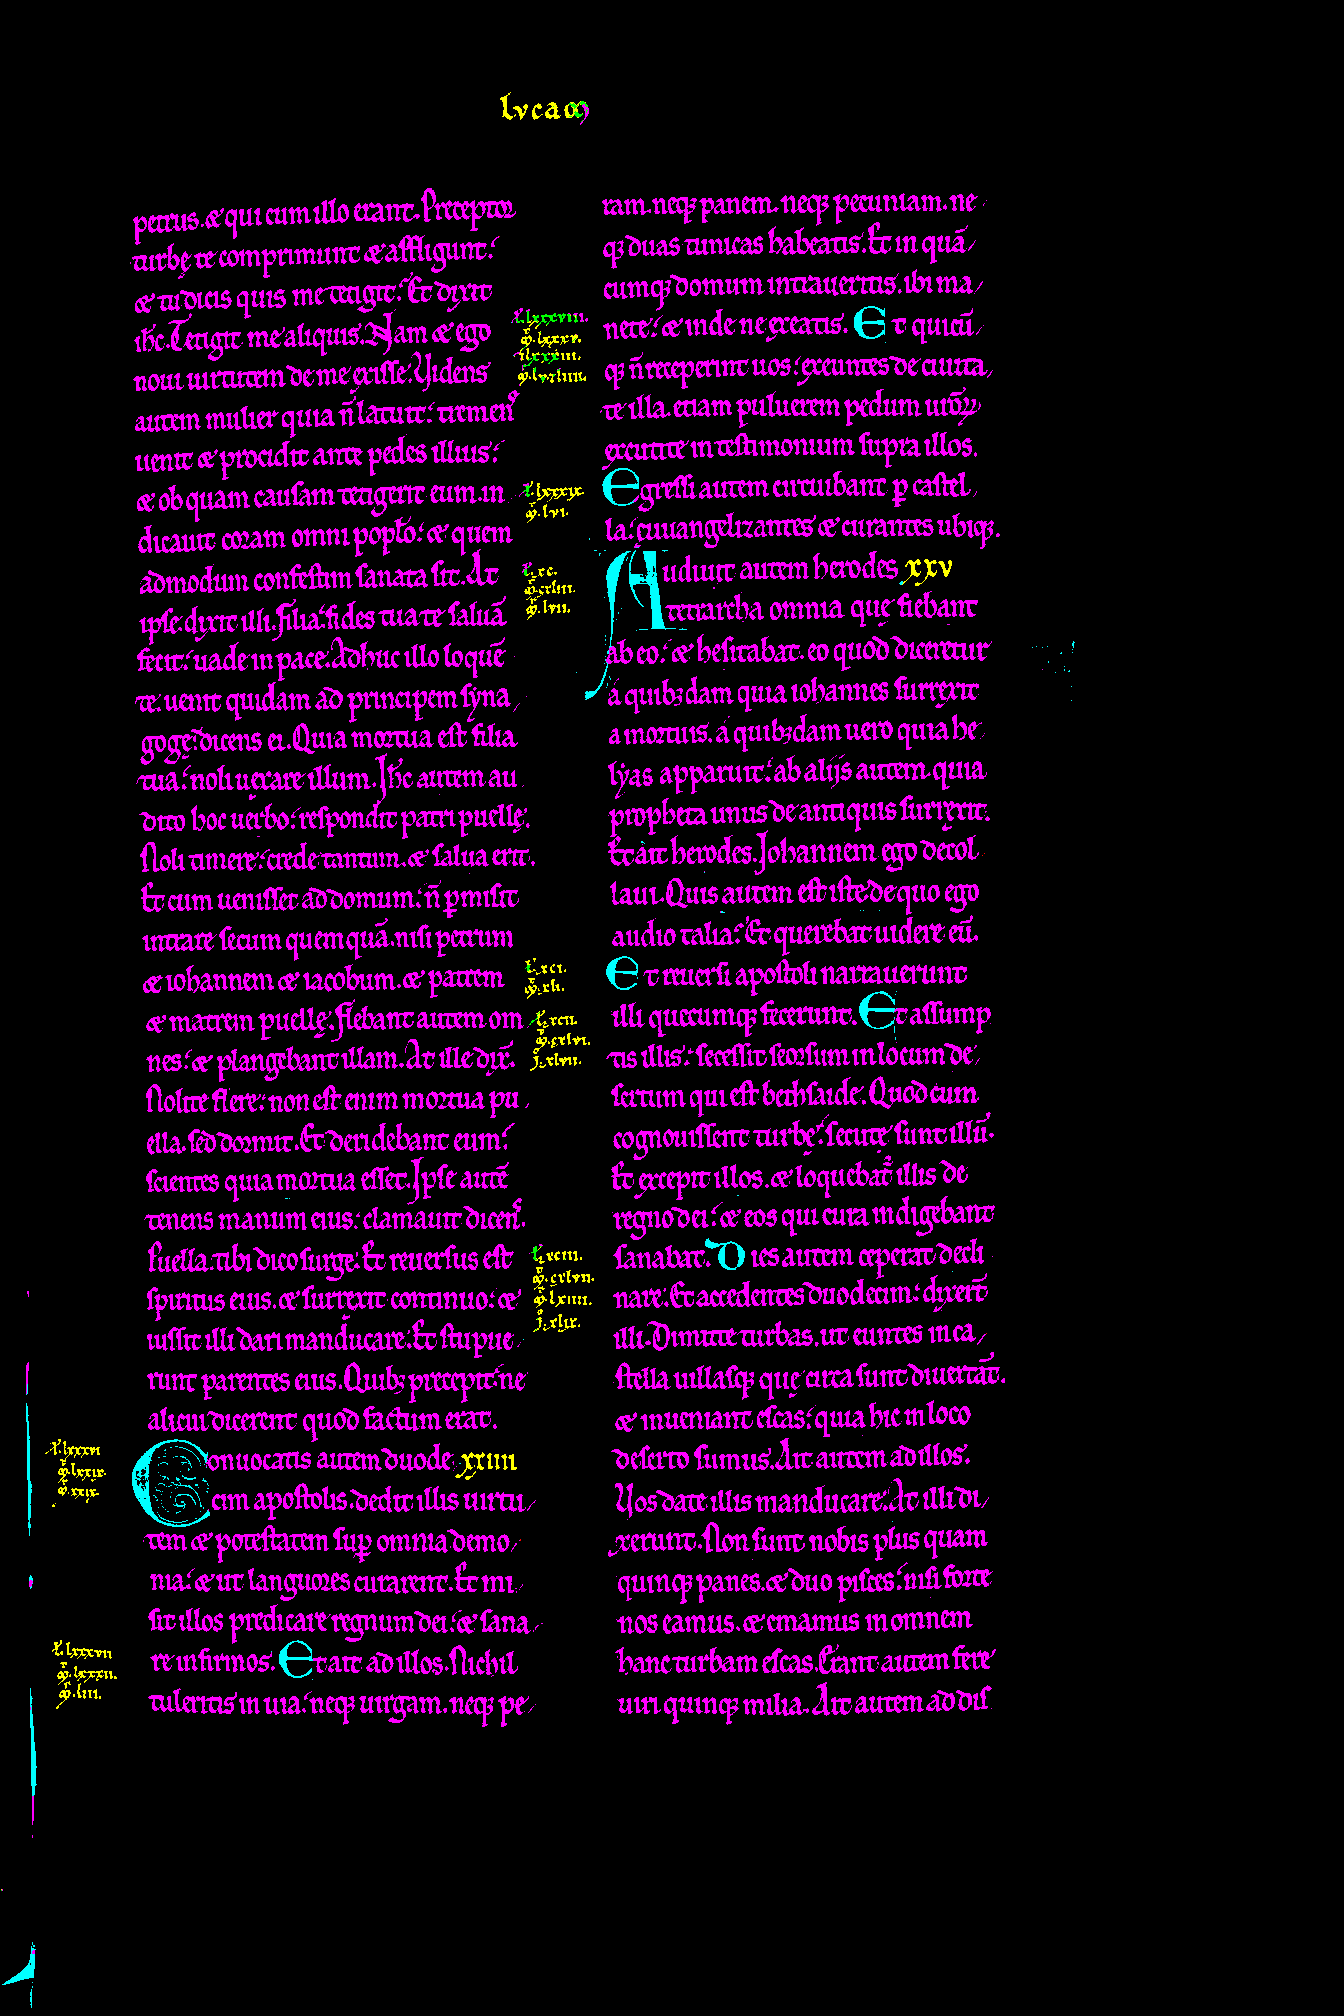 lucam
petrus. & qui cum illo erant. Preceptor
turbę te comprimunt & affligunt:
& tu dicis quis me tetigit? Et dixit
ihc. Tetigit me aliquis. Nam & ego
noui uirtutem de me exisse. Videns
autem mulier quia n̄ latuit: tremens
uenit & procidit ante pedes illius:
& ob quam causam tetigerit eum. in
dicauit coram omni poplo: & quem
admodum confestim sanata sit. At
ipse dixit illi. Filia: fides tua te saluā
fecit: uade in pace. Adhuc illo loquē
te. uenit quidam ad principem syna
gogę: dicens ei. Quia mortua est filia
tua: noli uexare illum. Ihc autem au
dito hoc uerbo: respondit patri puellę.
Noli timere: crede tantum. & salua erit.
Et cum uenisset ad domum: n̄ pmisit
intrare secum quemquā. nisi petrum
& iohannem & iacobum. & patrem
& matrem puellę. Flebant autem om
nes: & plangebant illam. At ille dix̄.
Nolite flere: non est enim mortua pu
ella. sed dormit. Et deridebant eum:
scientes quia mortua esset. Ipse autē
tenens manum eius: clamauit dicens.
Puella. tibi dico surge. Et reuersus est
spiritus eius. & surrexit continuo: &
iussit illi dari manducare. Et stupue
runt parentes eius. Quibꝫ precepit: ne
alicui dicerent quod factum erat.
Conuocatis autem duode xxiiii
cim apostolis. dedit illis uirtu
tem & potestatem sup omnia demo
nia: & ut languores curarent. Et mi
sit illos predicare regnum dei: & sana
re infirmos. Et ait ad illos. Nichil
tuleritis in uia: neqꝫ uirgam. neqꝫ pe
ram. neqꝫ panem. neqꝫ pecuniam. ne
qꝫ duas tunicas habeatis. Et in quā
cumqꝫ domum intraueritis. ibi ma
nete: & inde ne exeatis. Et quicū
qꝫ n̄ receperint uos: exeuntes de ciuita
te illa. etiam puluerem pedum ur̄oꝝ
excutite in testimonium supra illos.
Egressi autem circuibant p castel
la: euuangelizantes & curantes ubiqꝫ.
Audiuit autem herodes xxv
tetrarcha omnia quę fiebant
ab eo: & hesitabat. eo quod diceretur
a quibꝫdam quia iohannes surrexit
a mortuis. a quibꝫdam uero quia he
lyas apparuit: ab alijs autem. quia
propheta unus de antiquis surrexit.
Et ait herodes. Johannem ego decol
laui. Quis autem est iste de quo ego
audio talia? Et querebat uidere eū.
Et reuersi apostoli narrauerunt
illi quecumqꝫ fecerunt. Et assump
tis illis: secessit seorsum in locum de
sertum qui est bethsaide. Quod cum
cognouissent turbę: secutę sunt illū.
Et excepit illos. & loquebat illis de
regno dei: & eos qui cura indigebant
sanabat. Dies autem ceperat decli
nare. Et accedentes duodecim: dixer̄t
illi. Dimitte turbas. ut euntes in ca
stella uillasqꝫ quę circa sunt diuertāt.
& inueniant escas: quia hic in loco
deserto sumus. Ait autem ad illos.
Vos date illis manducare. At illi di
xerunt. Non sunt nobis plus quam
quinqꝫ panes. & duo pisces: nisi forte
nos eamus. & emamus in omnem
hanc turbam escas. Erant autem fere
uiri quinqꝫ milia. Ait autem ad dis